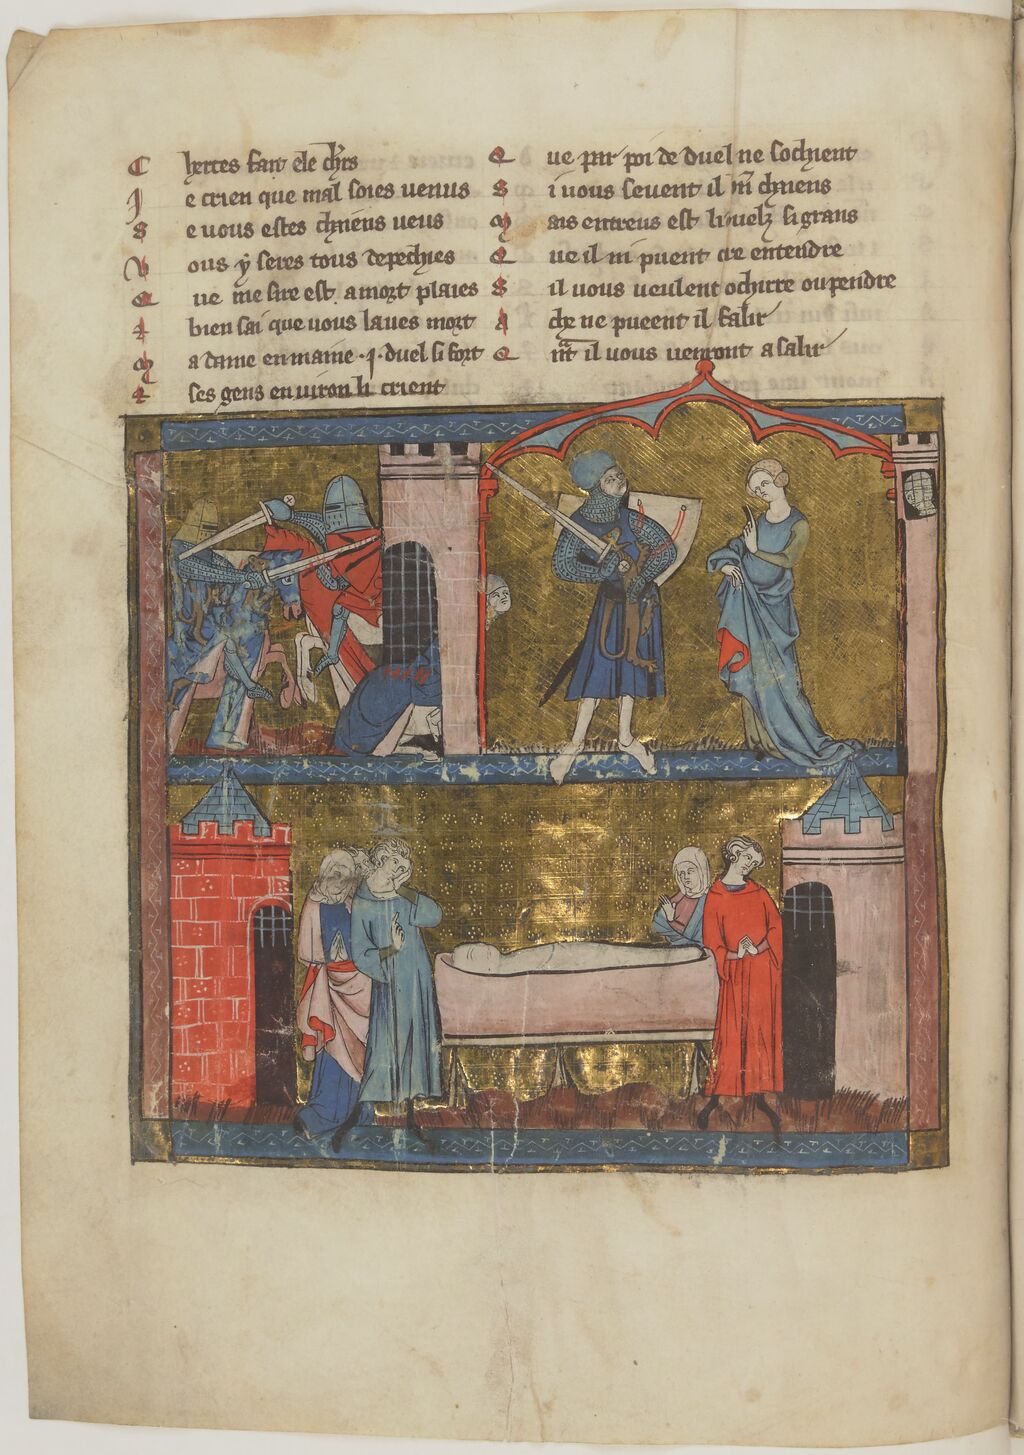 Certes fait ele chrs
Je crien que mal soies uenus
Se uous estes chaiens ueus
Vous y seres tous depechies
Que me sire est a mort plaies
Et bien sai que uous laues mort
Ma dame en maine .j. duel si fort
Et ses gens enuiron li crient
Que par poi de duel ne sochient
Si uous seuent il bn chaiens
Mais entreus est li duelz si grans
Que il ni puent are entendre
Sil uous ueulent ochirre ou pendre
A che ne pueent il falir
Qnt il uous uenront asalir